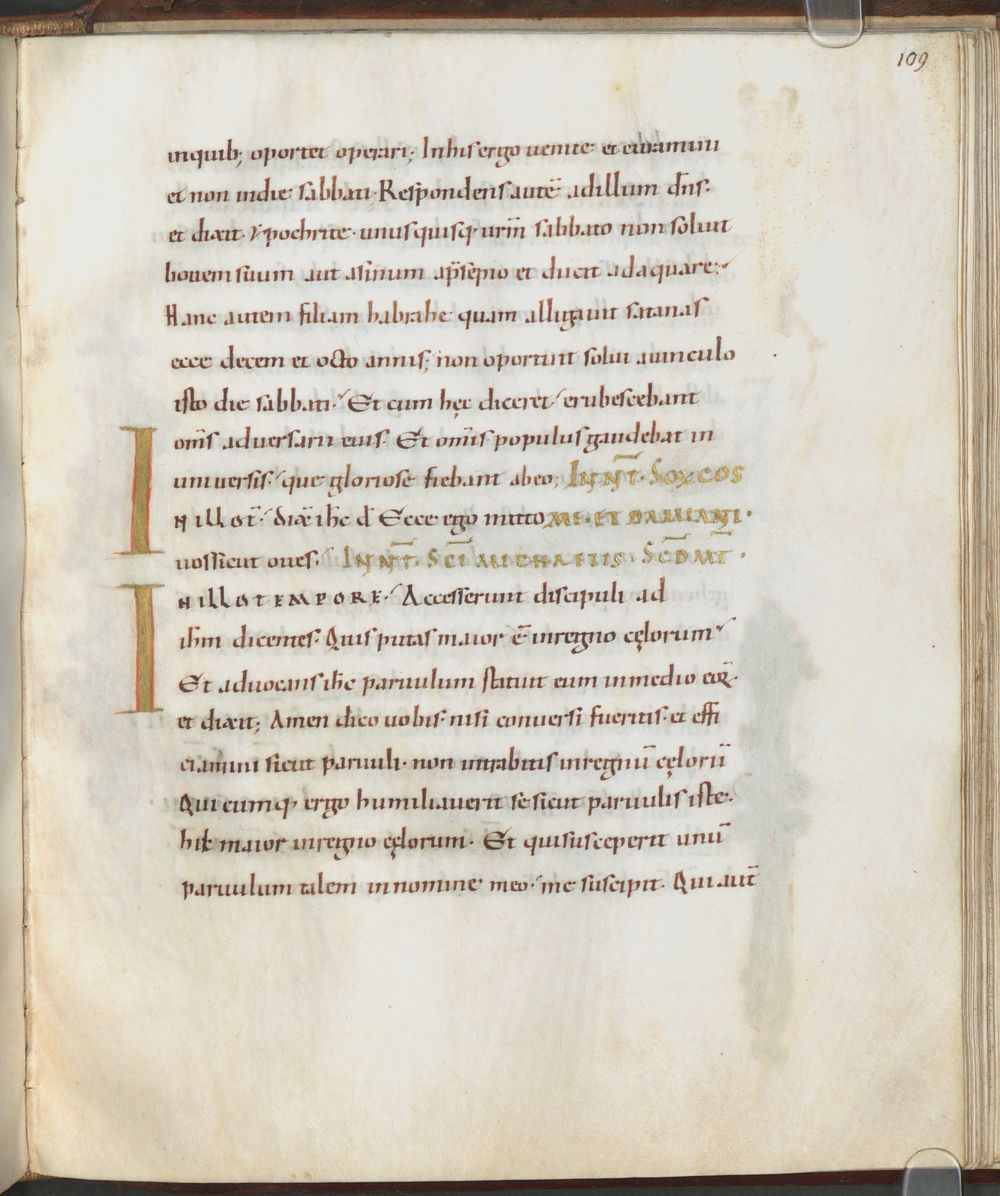 109
inquib; oportet operari; In his ergo uenite et curamini
et non in die sabbati. Respondens autē ad illum dn̄s.
et dixit. ypochrite. unusquisq; ur̄m sabbato non soluit
bouem suum aut asinum a p̄sepio et ducit adaquare;
Hanc autem filiam habrahe quam alligauit satanas
ecce decem et octo annis; non oportuit solui a uinculo
isto die sabbati. Et cum hęc diceret. erubescebant
om̄s aduersarii eius. Et omīs populus gaudebat in
uniuersis. que gloriose fiebant ab eo; IN NT̄. S̄OR̄ COS
IN ILLO T̄. Dix̄ ih̄c d̄ Ecce ego mitto MI. ET DAMIANI.
uos sicut oues. IN NT̄. S̄CI MICHAELIS. S̄CD MT̄.
IN ILLO TEMPORE. Accesserunt discipuli ad
ih̄m dicentes. Quis putas maior ē in regno cęlorum
Et aduocans ih̄c paruulum statuit eum in medio eoꝝ.
et dixit; Amen dico uobis. nisi conuersi fueritis. et effi
ciamini sicut paruuli. non intrabitis in regnū cęlorū
Qui cumq; ergo humiliauerit se sicut paruulis iste.
hic ē maior in regno cęlorum. Et qui susceperit unū
paruulum talem in nomine meo. me suscipit. Qui aut̄